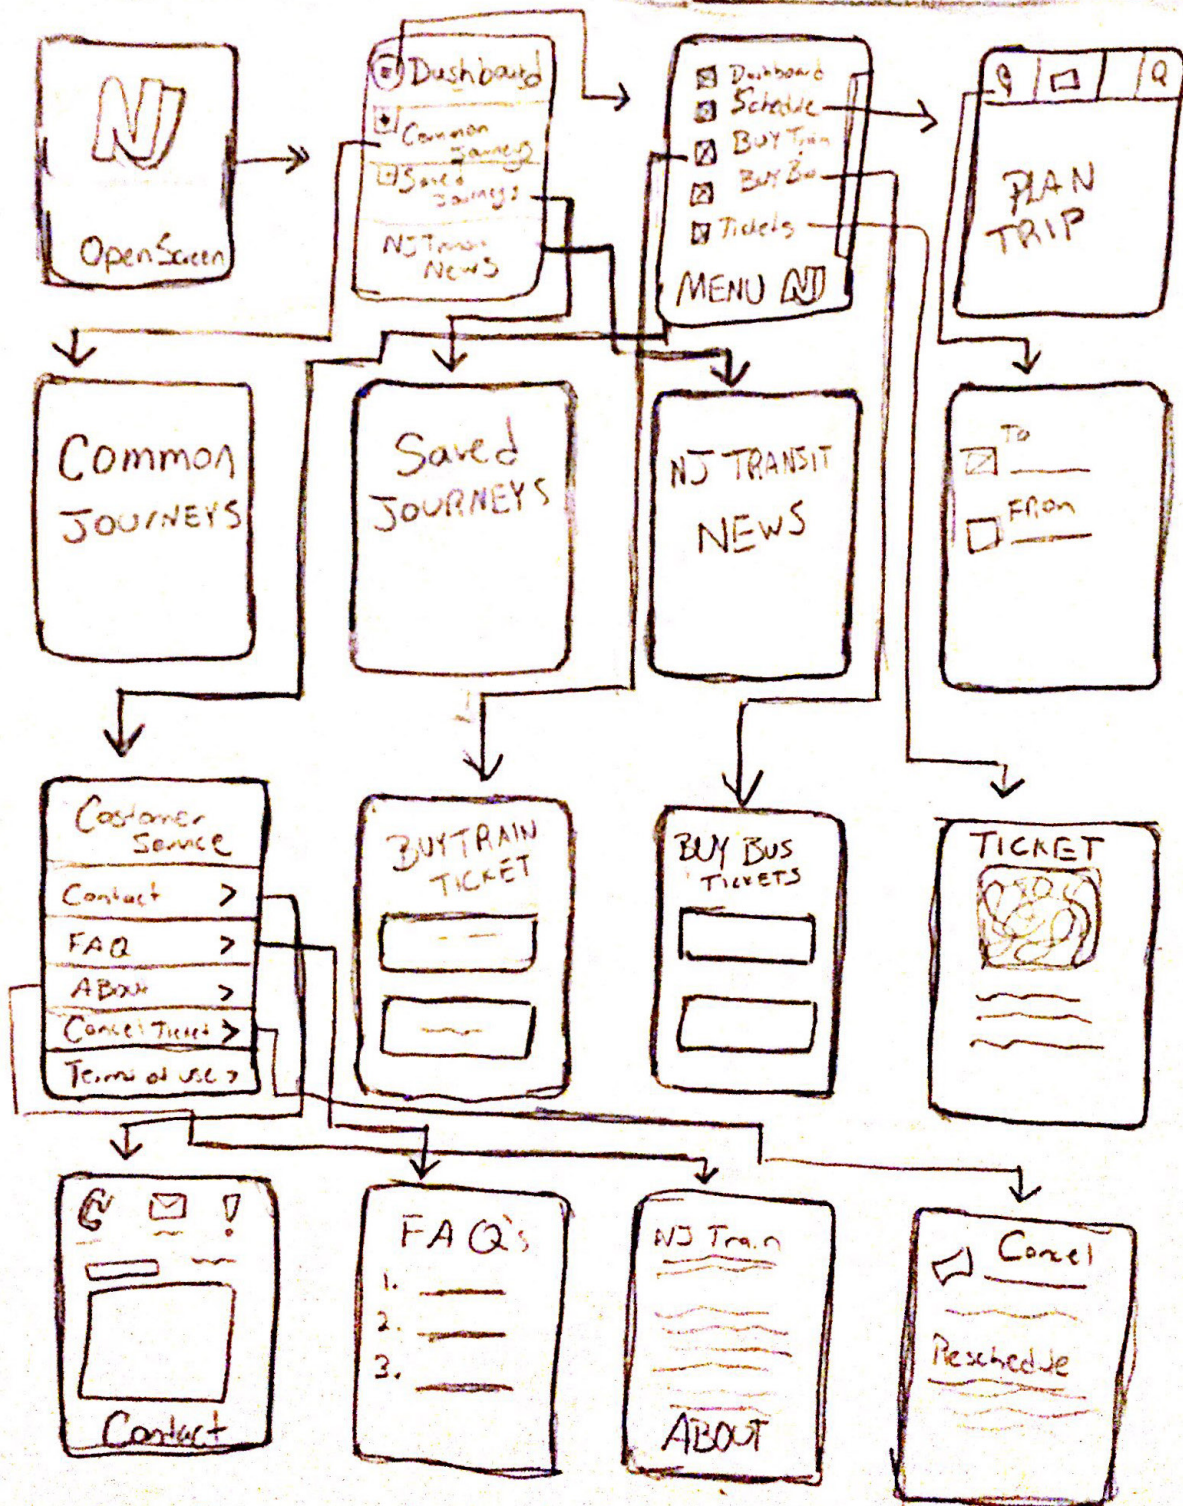 NJ
Open Screen
Dashboard
Common
Journeys
Saved
Journeys
NJ Train
News
Dashboard
Schedule
BUY Train
BUY Bus
Tickets
MENU NJ
PLAN
TRIP
Common
JOURNEYS
Saved
JOURNEYS
NJ TRANSIT
NEWS
To
FROM
Customer
Service
Contact >
FAQ >
ABOUT >
Cancel Ticket >
Terms of use >
BUY TRAIN
TICKET
BUY BUS
TICKETS
TICKET
Contact
FAQ's
1.
2.
3.
NJ Train
ABOUT
Cancel
Reschedule